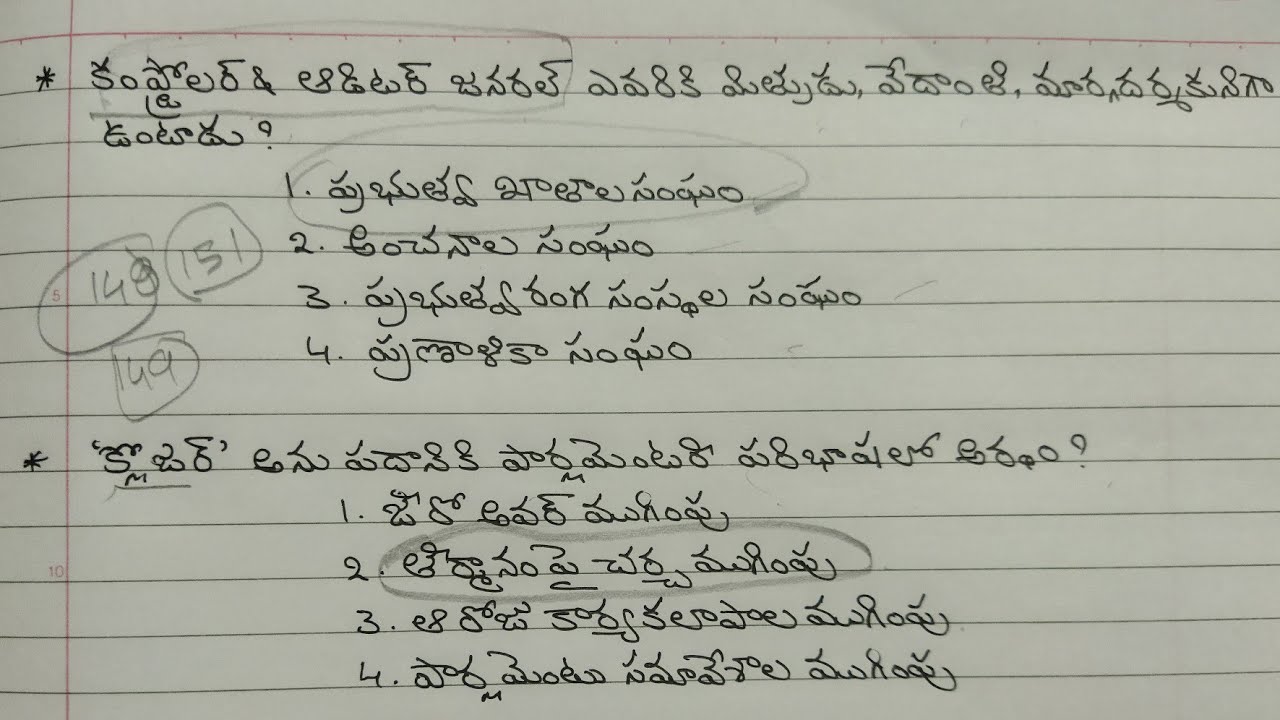 * కంప్ట్రోలర్ & ఆడిటర్ జనరల్ ఎవరికి మిత్రుడు, వేదాంతి, మార్గదర్శకునిగా
ఉంటాడు?
1. ప్రభుత్వ ఖాతాల సంఘం
2. అంచనాల సంఘం
3. ప్రభుత్వ రంగ సంస్థల సంఘం
4. ప్రణాళికా సంఘం
148
151
149
* 'క్లోజర్' అను పదానికి పార్లమెంటరీ పరిభాషలో అర్థం?
1. జీరో అవర్ ముగింపు
2. తీర్మానంపై చర్చ ముగింపు
3. ఆ రోజు కార్యకలాపాల ముగింపు
4. పార్లమెంటు సమావేశాల ముగింపు
5
10